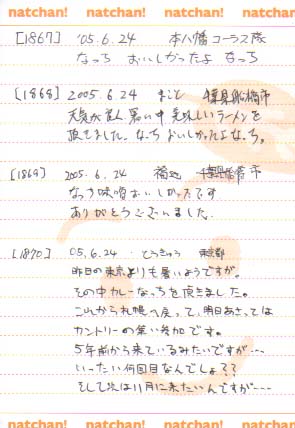 natchan! natchan! natchan! natchan!
[1867] '05.6.24 本八幡コーラス隊
なっち おいしかったよ なっち
[1868] 2005.6.24 まこと 千葉県船橋市
天気が良く、暑い中 美味しいラーメンを
頂きました。なっち おいしかったよなっち。
[1869] 2005.6.24 千葉県 市
なっち味噌おいしかったです
ありがとうございました。
[1870] 05.6.24 とうきゅう 東京都
昨日の東京よりも暑いようですが。
その中カレーなっちを頂きました。
これから札幌へ戻って、明日あさっては
カントリーの集い参加です。
5年前から来ているみたいですが…
いったい何回目なんでしょ??
そして次は11月に来たいんですが…
natchan! natchan! natchan! natchan!